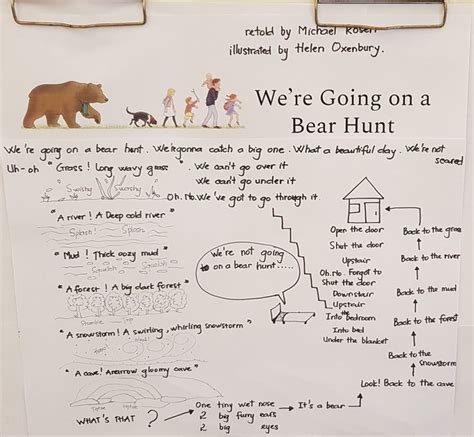 retold by Michael Rosen
illustrated by Helen Oxenbury.
We're Going on a
Bear Hunt
We're going on a bear hunt. We're gonna catch a big one. What a beautiful day. We're not
scared
Uh-oh "Grass! Long wavy grass". We can't go over it
We can't go under it
Oh. No. We've got to go through it.
Swishy Swashy
"A river! A Deep cold river"
Splash! Splosh!
"Mud! Thick oozy mud"
Squelch Squelch
"A forest! A big dark forest"
Stumble Trip
"A snowstorm! A swirling, whirling snowstorm"
"A cave! A narrow gloomy cave"
Tiptoe Tiptoe
WHAT'S THAT ?
One tiny wet nose
2 big furry ears
2 big eyes
It's a bear
Look! Back to the cave
Back to the
snowstorm
Back to the forest
Back to the mud
Back to the river
Back to the grass
Open the door
Shut the door
Upstair
Oh. No. Forgot to
Shut the door
Downstair
Upstair
Into the bedroom
Into bed
Under the blanket
We're not going
on a bear hunt.....